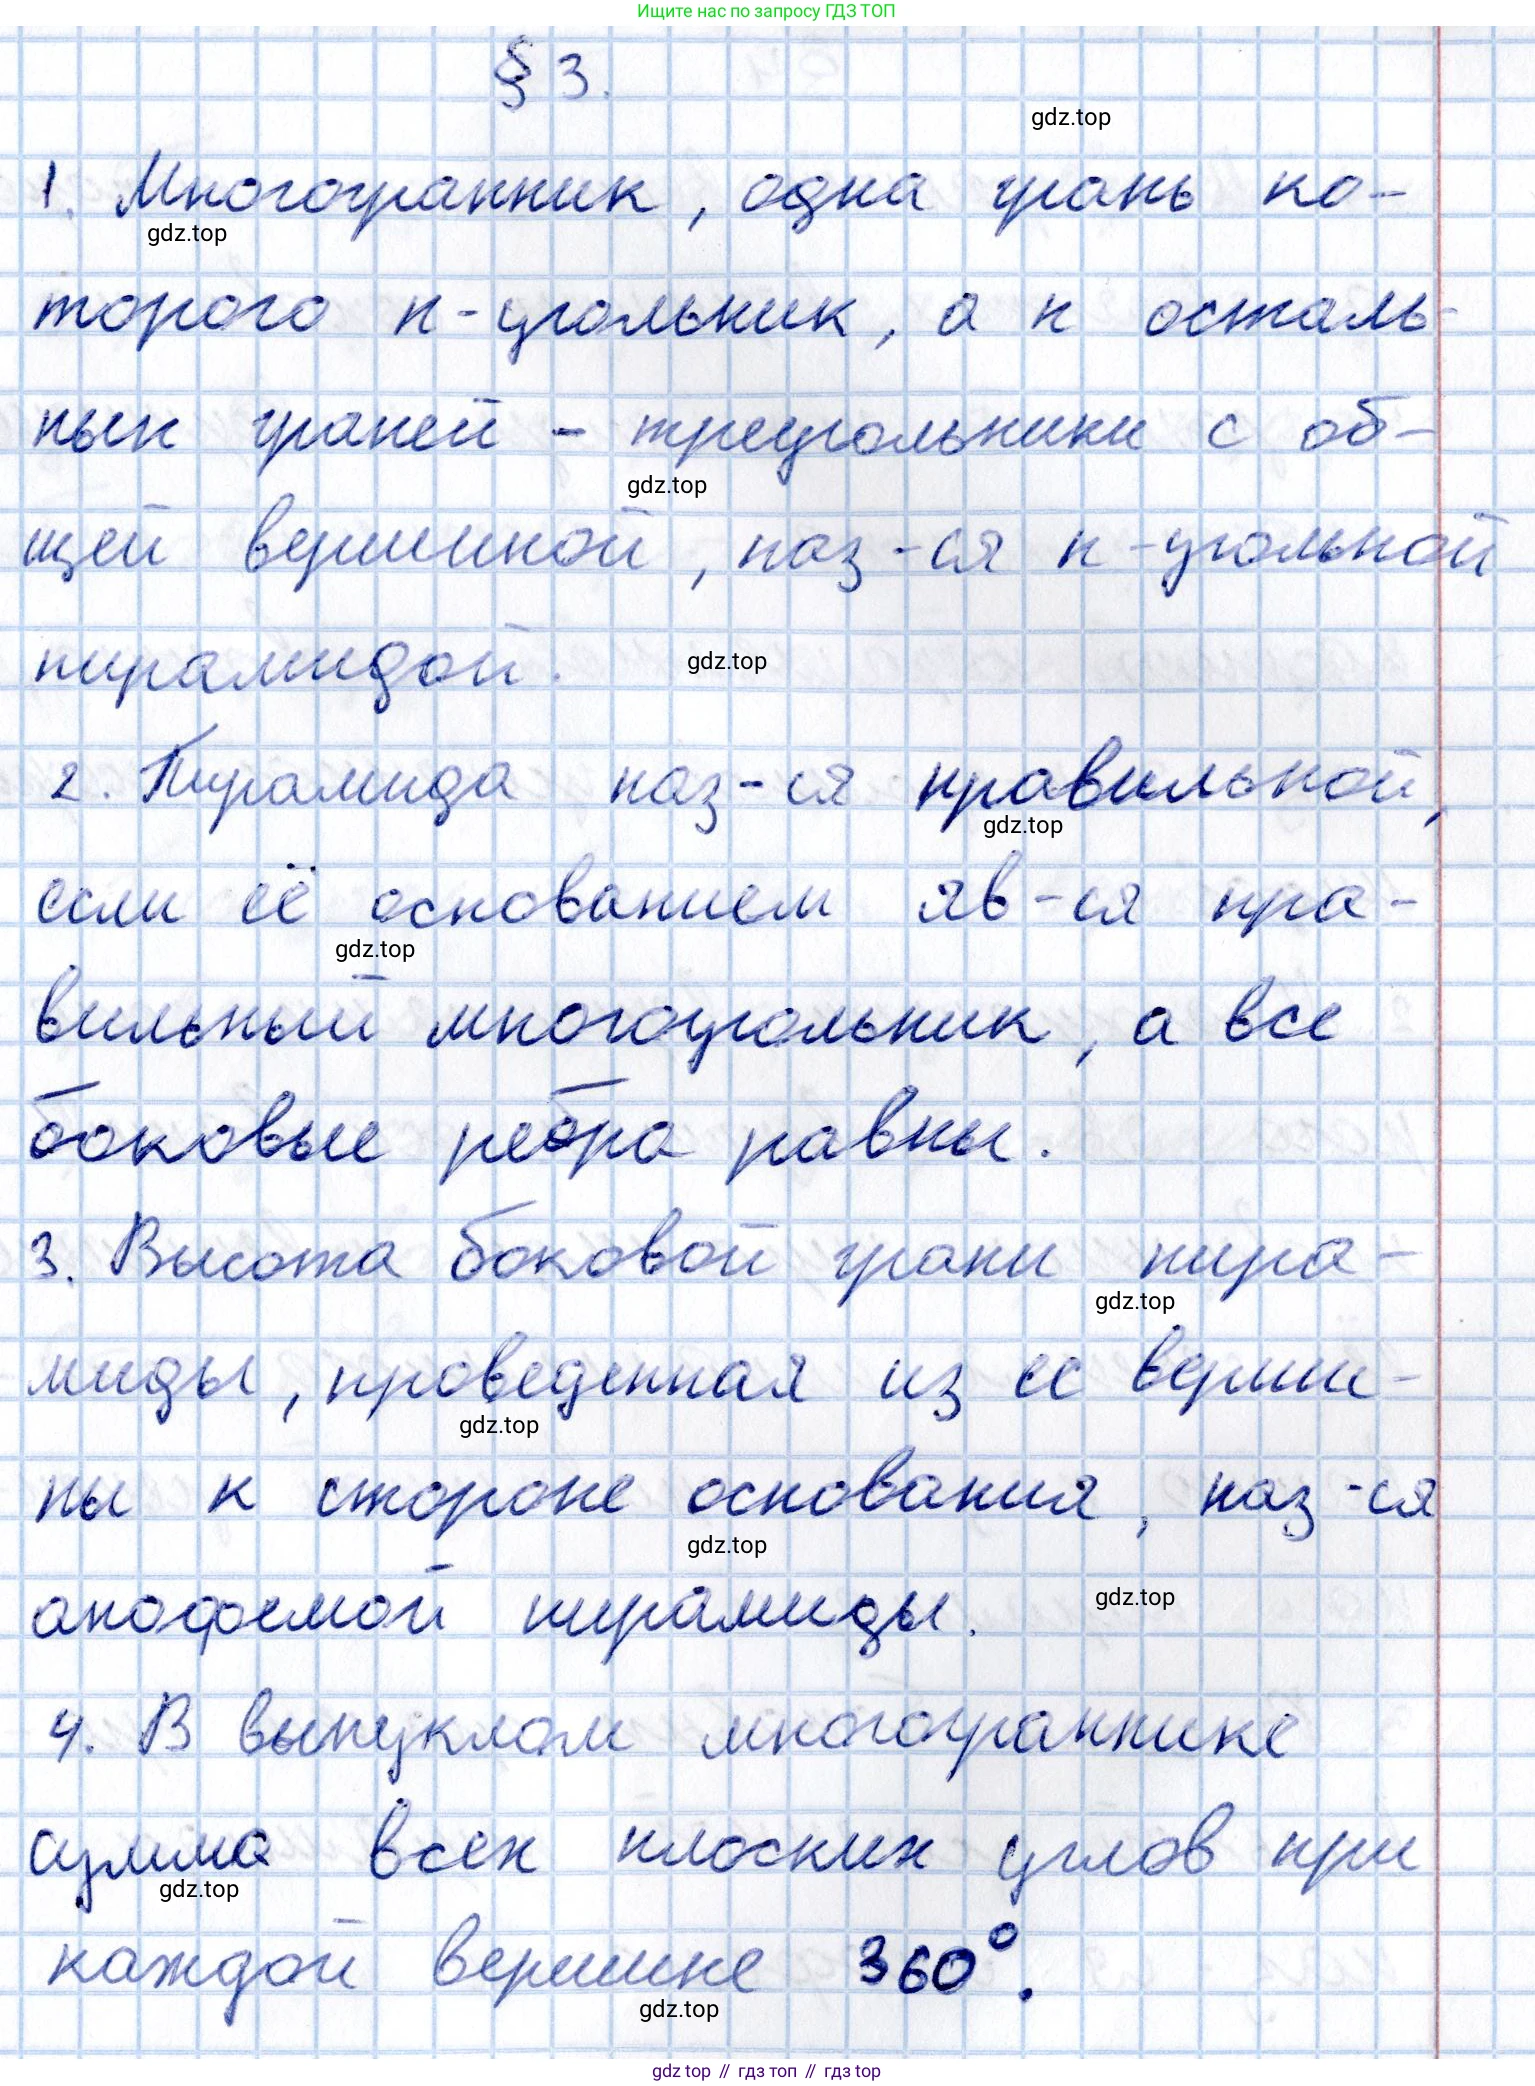 Ищите нас по запросу ГДЗ ТОП
§ 3.
gdz.top
1. Многогранник, одна грань ко-
gdz.top
торого n-угольник, а n осталь-
ных граней - треугольники с об-
gdz.top
щей вершиной, наз-ся n-угольной
пирамидой.
gdz.top
2. Пирамида наз-ся правильной,
gdz.top
если её основанием яв-ся пра-
gdz.top
вильный многоугольник, а все
боковые ребра равны.
3. Высота боковой грани пира-
gdz.top
миды, проведенная из ее верши-
gdz.top
ны к стороне основания, наз-ся
gdz.top
апофемой пирамиды.
gdz.top
4. В выпуклом многограннике
сумма всех плоских углов при
gdz.top
каждой вершине 360°.
gdz.top
gdz top // гдз топ // гдз.top